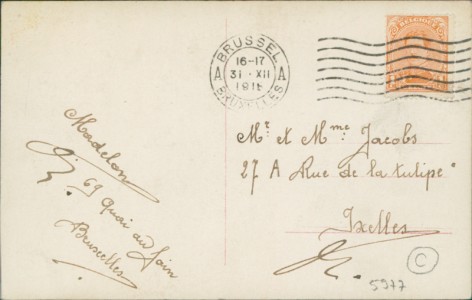 BRUSSEL
16-17
A 31 · XII A
BRUXELLES
Mr et Mme Jacobs
27 A Rue de la tulipe
Ixelles
Madelon
69 Quai au foin
Bruxelles
C
5977